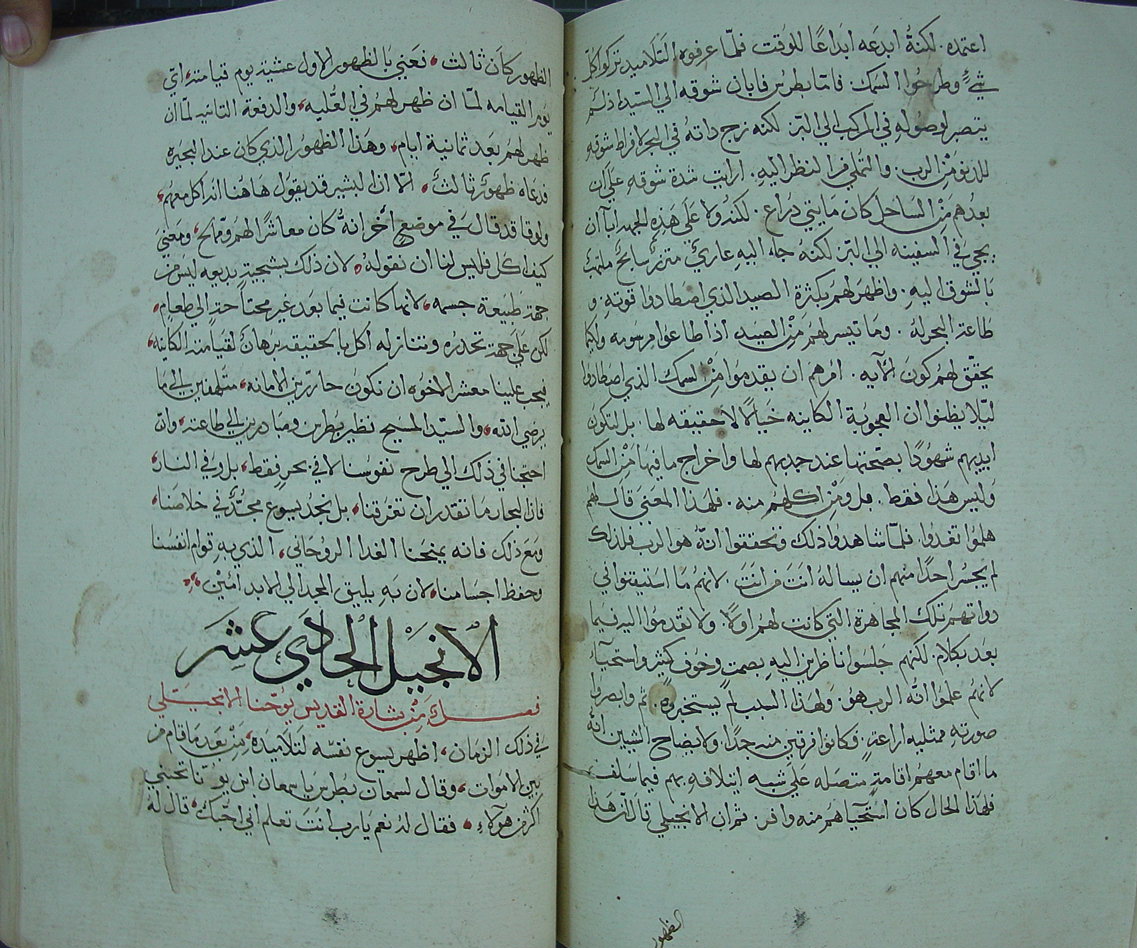 اعتمده. لكنه ابدعه ابداعًا للوقت فلما عرفوه التلاميذ تركوا كل
شيً وطرحوا السمك. فاما بطرس فابان شوقه الي السيد اذ لم
يتصبر لوصوله في المركب الي البر لكنه زج ذاته في البحر لافراط شوقه
للدنو من الرب. والتملي من النظر اليه. ارايت شدة شوقه علي ان
بعدهم من الساحل كان مايتي دراع. لكنه ولا علي هذه الجهه ابا ان
يجي في السفينه الي البر لكنه جاه اليه عاري متزر سابح ملتهب
بالشوق اليه. واظهر لهم بكثرة الصيد الذي اصطادوا قوته. و
طاعة البحر له. وما تيسر لهم من الصيد اذا طاعوا مرسومه ولكيما
يحقق لهم كون الآيه. امرهم ان يقدموا من السمك الذي اصطادوا
ليلا يظنوا ان العجوبة الكاينه خيالا لا حقيقه لها. بل لتكون
ايديهم شهودًا بصحتها عند جدبهم لها واخراج ما فيها من السمك
وليس هذا فقط. بل ومن اكلهم منه. فلهذا المعني قال لهم
هلموا تغدوا. فلما شاهدوا ذلك وتحققوا انه هو الرب فلذلك
لم يجسر احدًا منهم ان يساله انت من انت لانهم ما استيقنوا في
ذواتهم تلك المجاهرة التي كانت لهم اولا. ولا تقدموا اليه فيما
بعد بكلام. لكنهم جلسوا ناظرين اليه بصمت وخوف كثير واستحيآ
لانهم علموا انه الرب هو. ولهذا السبب لم يستخبروه. ثم وابصروا
صورته ممثليه اراعة. وكانوا فرقين منه جدا. ولايضاح التبين انه
ما اقام معهم اقامة متصله علي شبه ايتلافه بهم فيما سلف
فلهذا الحال كان استحياهم منه وافر. ثم ان الانجيلي قال ان هذا
الظهور
الظهور كان ثالث نعني بالظهور الاول عشية يوم قيامته اي
يوم القيامه لما ان ظهر لهم في العليه والدفعة الثانيه لما ان
ظهر لهم بعد ثمانية ايام. وهذا الظهور الذي كان عند البحيره
فدعاه ظهور ثالث الا ان البشير قد يقول هاهنا انه اكل معهم
ولوقا قد قال في موضع اخر انه كان معاشرا لهم ومالح ومعني
كيف اكل فليس لنا ان نقوله لان ذلك بسجية بديعه ليس من
جهة طبيعة جسمه لانها كانت فيما بعد غير محتاجه الي طعام
لكن علي جهة تحدره وتنازله اكل بالحقيقه برهان لقيامته الكاينه
يجب علينا معشر الاخوه ان نكون حارين بالامانه متلهفين الي ما
يرضي الله والسيد المسيح نظير بطرس ومبادرين الي طاعته وان
احتجنا في ذلك الي طرح نفوسنا لا في بحر فقط بل وفي النار
فان البحار ما تقدر ان تغرقنا بل نجد يسوع مجتهد في خلاصنا
ومع ذلك فانه يمنحنا الغدا الروحاني الذي به قوام انفسنا
وحفظ اجسامنا لان به يليق المجد الي الابد امين
الانجيل الحادي عشر
فصل من بشارة القديس يوحنا الانجيلي
في ذلك الزمان اظهر يسوع نفسه لتلاميذه من بعد ما قام من
بين الاموات وقال لسمعان بطرس يا سمعان ابن يونا تحبني
اكثر من هولاء فقال له نعم يا رب انت تعلم اني احبك قال له